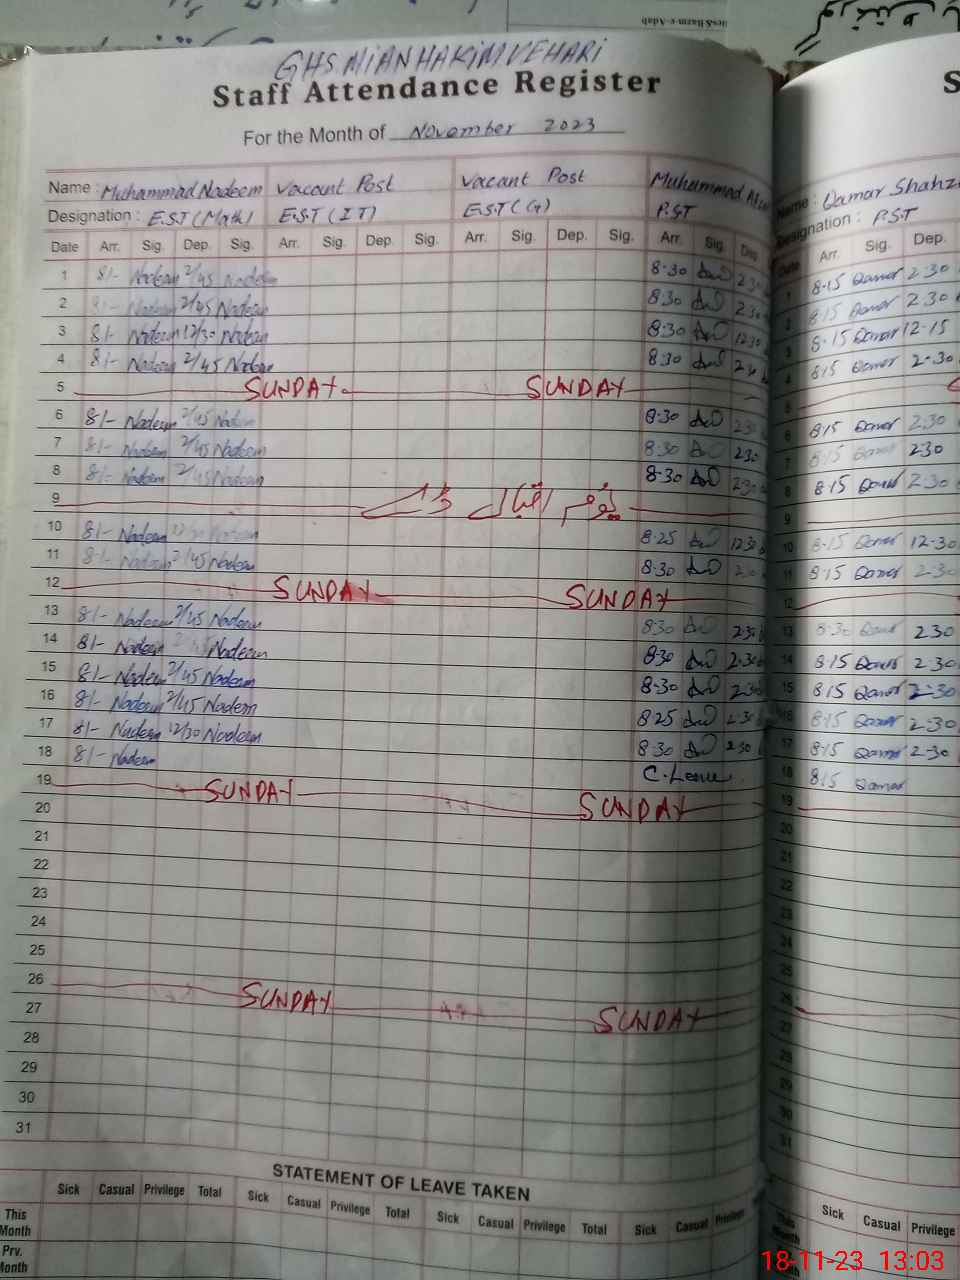 GHS. MIAN HAKIM. VEHARI
Staff Attendance Register
For the Month of November 2023
Name : Muhammad Nadeem Vacant Post Vacant Post Muhammad
Designation : E.S.T (Math) E.S.T (IT) E.S.T (G) P.S.T
Date Arr. Sig. Dep. Sig. Arr. Sig. Dep. Sig. Arr. Sig. Dep. Sig. Arr. Sig. Dep
1 8/- Nadeem 2/45 Nadeem 8-30 2 30
2 8/- Nadeem 2/45 Nadeem 8 30 2 30
3 8/- Nadeem 12/30 Nadeem 8-30 12 30
4 8/- Nadeem 2/45 Nadeem 8 30 2 30
5 SUNDAY SUNDAY
6 8/- Nadeem 2/45 Nadeem 8-30 2 30
7 8/- Nadeem 2/45 Nadeem 8-30 2 30
8 8/- Nadeem 2/45 Nadeem 8-30 2 30
9 یوم اقبال ڈے
10 8/- Nadeem 12/30 Nadeem 8-25 12 30
11 8/- Nadeem 2/45 Nadeem 8-30 2 30
12 SUNDAY SUNDAY
13 8/- Nadeem 2/45 Nadeem 8-30 2-30
14 8/- Nadeem 2/45 Nadeem 8-30 2-30
15 8/- Nadeem 2/45 Nadeem 8-30 2-30
16 8/- Nadeem 2/45 Nadeem 8 25 2-30
17 8/- Nadeem 12/30 Nadeem 8-30 2 30
18 8/- Nadeem C. Leave
19 SUNDAY
20 SUNDAY
21
22
23
24
25
26 SUNDAY
27 SUNDAY
28
29
30
31
STATEMENT OF LEAVE TAKEN
Sick Casual Privilege Total Sick Casual Privilege Total Sick Casual Privilege Total Sick Casual Privilege
This Month
Prv. Month
S
Name : Qamar
Designation : P.S.T
Date Arr. Sig. Dep.
1 8-15 Qamar 2-30
2 8-15 Qamar 2-30
3 8-15 Qamar 12-15
4 8-15 Qamar 2-30
5
6 8-15 Qamar 2-30
7 8-15 Qamar 2-30
8 8-15 Qamar 2-30
9
10 8-15 Qamar 12-30
11 8-15 Qamar 2-30
12
13 8-30 Qamar 2 30
14 8-15 Qamar 2-30
15 8-15 Qamar 2-30
16 8-15 Qamar 2-30
17 8-15 Qamar 2-30
18 8-15 Qamar
19
20
21
22
23
24
25
26
27
28
29
30
31
Sick Casual Privilege
This Month
18-11-23 13:03